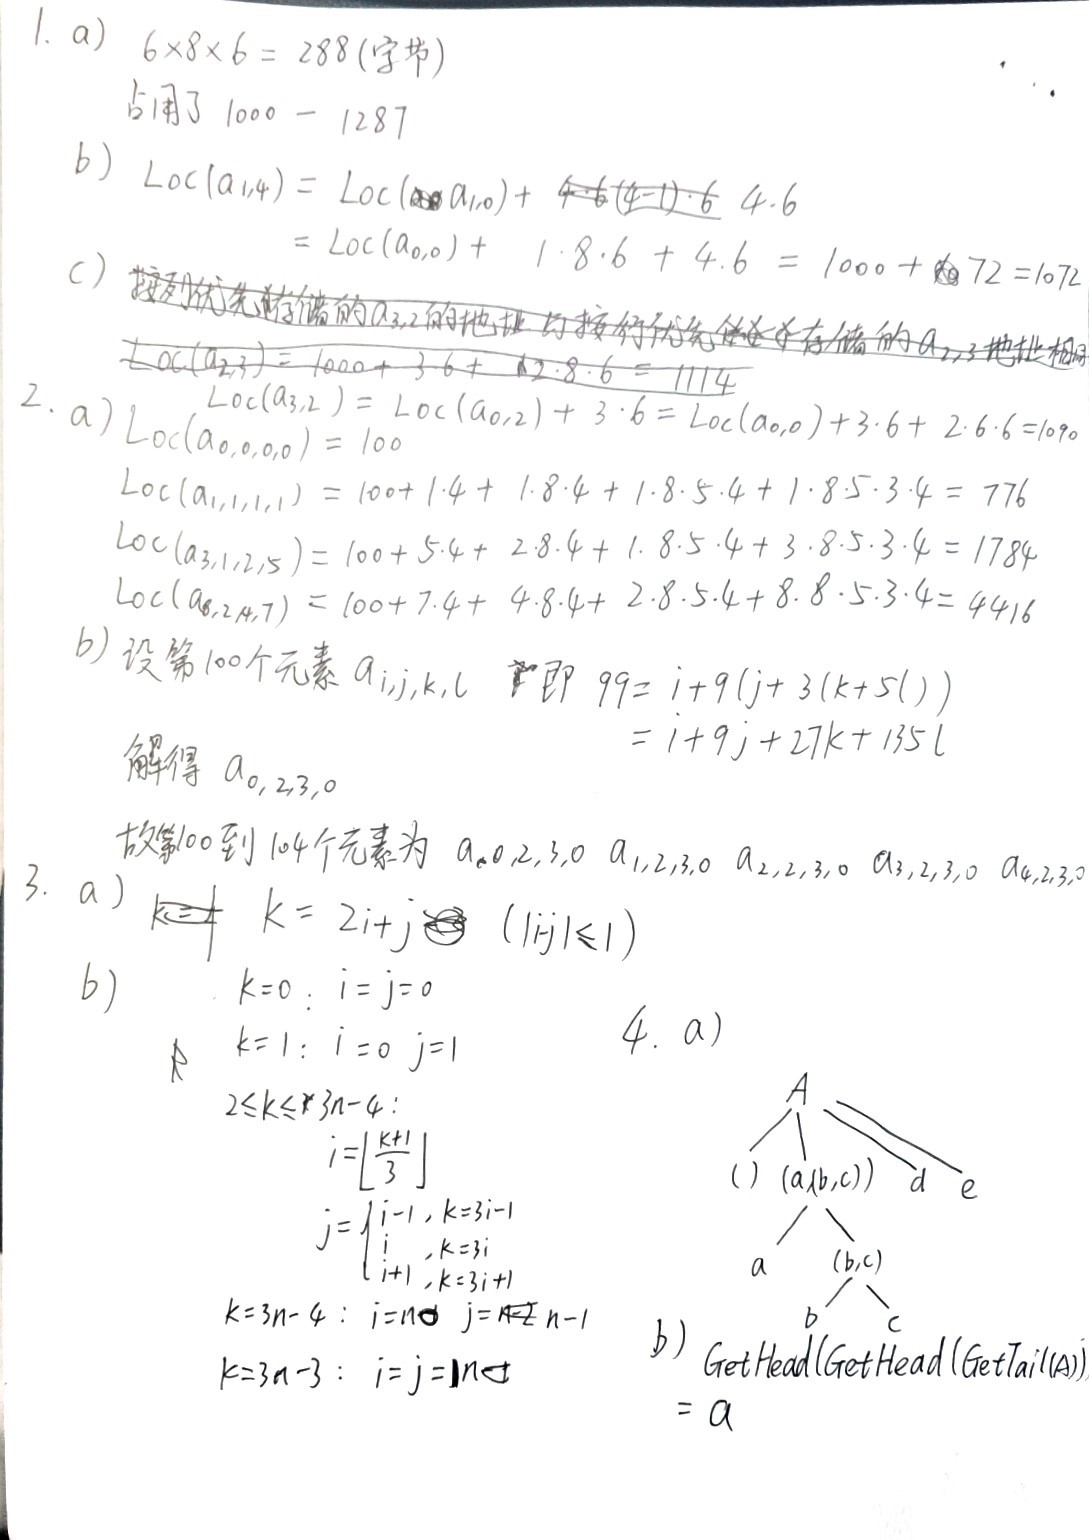 1. a) 6×8×6 = 288(字节)
占用了 1000 - 1287
b) Loc(a1,4) = Loc(a1,0) + 4·6
= Loc(a0,0) + 1·8·6 + 4·6 = 1000 + 72 = 1072
c) 按列优先存储的a3,2的地址与按行优先存储的a2,3地址相同
Loc(a2,3) = 1000 + 3·6 + 2·8·6 = 1114
Loc(a3,2) = Loc(a0,2) + 3·6 = Loc(a0,0) + 3·6 + 2·6·6 = 1090
2. a) Loc(a0,0,0,0) = 100
Loc(a1,1,1,1) = 100 + 1·4 + 1·8·4 + 1·8·5·4 + 1·8·5·3·4 = 776
Loc(a3,1,2,5) = 100 + 5·4 + 2·8·4 + 1·8·5·4 + 3·8·5·3·4 = 1784
Loc(a8,2,4,7) = 100 + 7·4 + 4·8·4 + 2·8·5·4 + 8·8·5·3·4 = 4416
b) 设第100个元素 ai,j,k,l 即 99 = i+9(j+3(k+5l))
= i+9j+27k+135l
解得 a0,2,3,0
故第100到104个元素为 a0,2,3,0 a1,2,3,0 a2,2,3,0 a3,2,3,0 a4,2,3,0
3. a) k = 2i+j (|i-j|≤1)
b) k=0: i=j=0
k=1: i=0 j=1
2≤k≤3n-4:
i=⌊(k+1)/3⌋
j={i-1, k=3i-1
i, k=3i
i+1, k=3i+1
k=3n-4: i=n j=n-1
k=3n-3: i=j=n
4. a)
A
() (a,(b,c)) d e
a (b,c)
b c
b) GetHead(GetHead(GetTail(A))
= a